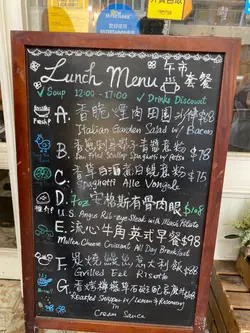 Lunch Menu 午市套餐
✓ Soup 12:00 - 17:00 ✓ Drinks Discount
A. 香脆煙肉田園沙律 $
Italian Garden Salad w/ Bacon
B. 香煎 帶子 意粉 $78
Pan Fried Scallop Spaghetti w/ Pesto
C. 香草白酒煮白蜆意粉 $75
Spaghetti Alle Vongole
D. 7oz 安格斯有骨肉眼 $108
U.S. Angus Rib-eye Steak with Mash Potato
E. 流心牛角英式早餐 $98
Molten Cheese Croissant All Day Breakfast
F. 炭燒鰻魚意大利飯 $98
Grilled Eel Risotto
G. 香烤檸檬草石斑配忌廉汁 $98
Roasted w/ Lemon & Rosemary
in
Cream Sauce